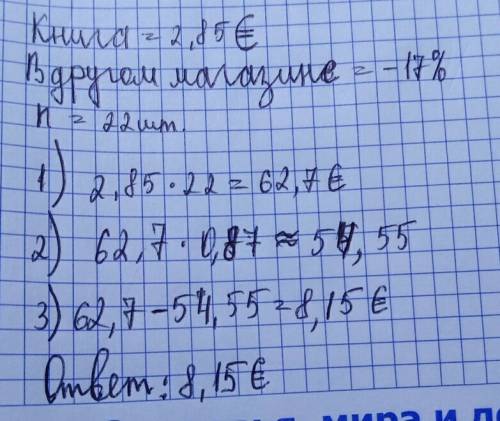 Книга = 2,85€
В другом магазине = -17%
n = 22шт.
1) 2,85 · 22 = 62,7€
2) 62,7 · 0,87 ≈ 54,55
3) 62,7 - 54,55 = 8,15€
Ответ: 8,15€
мира и